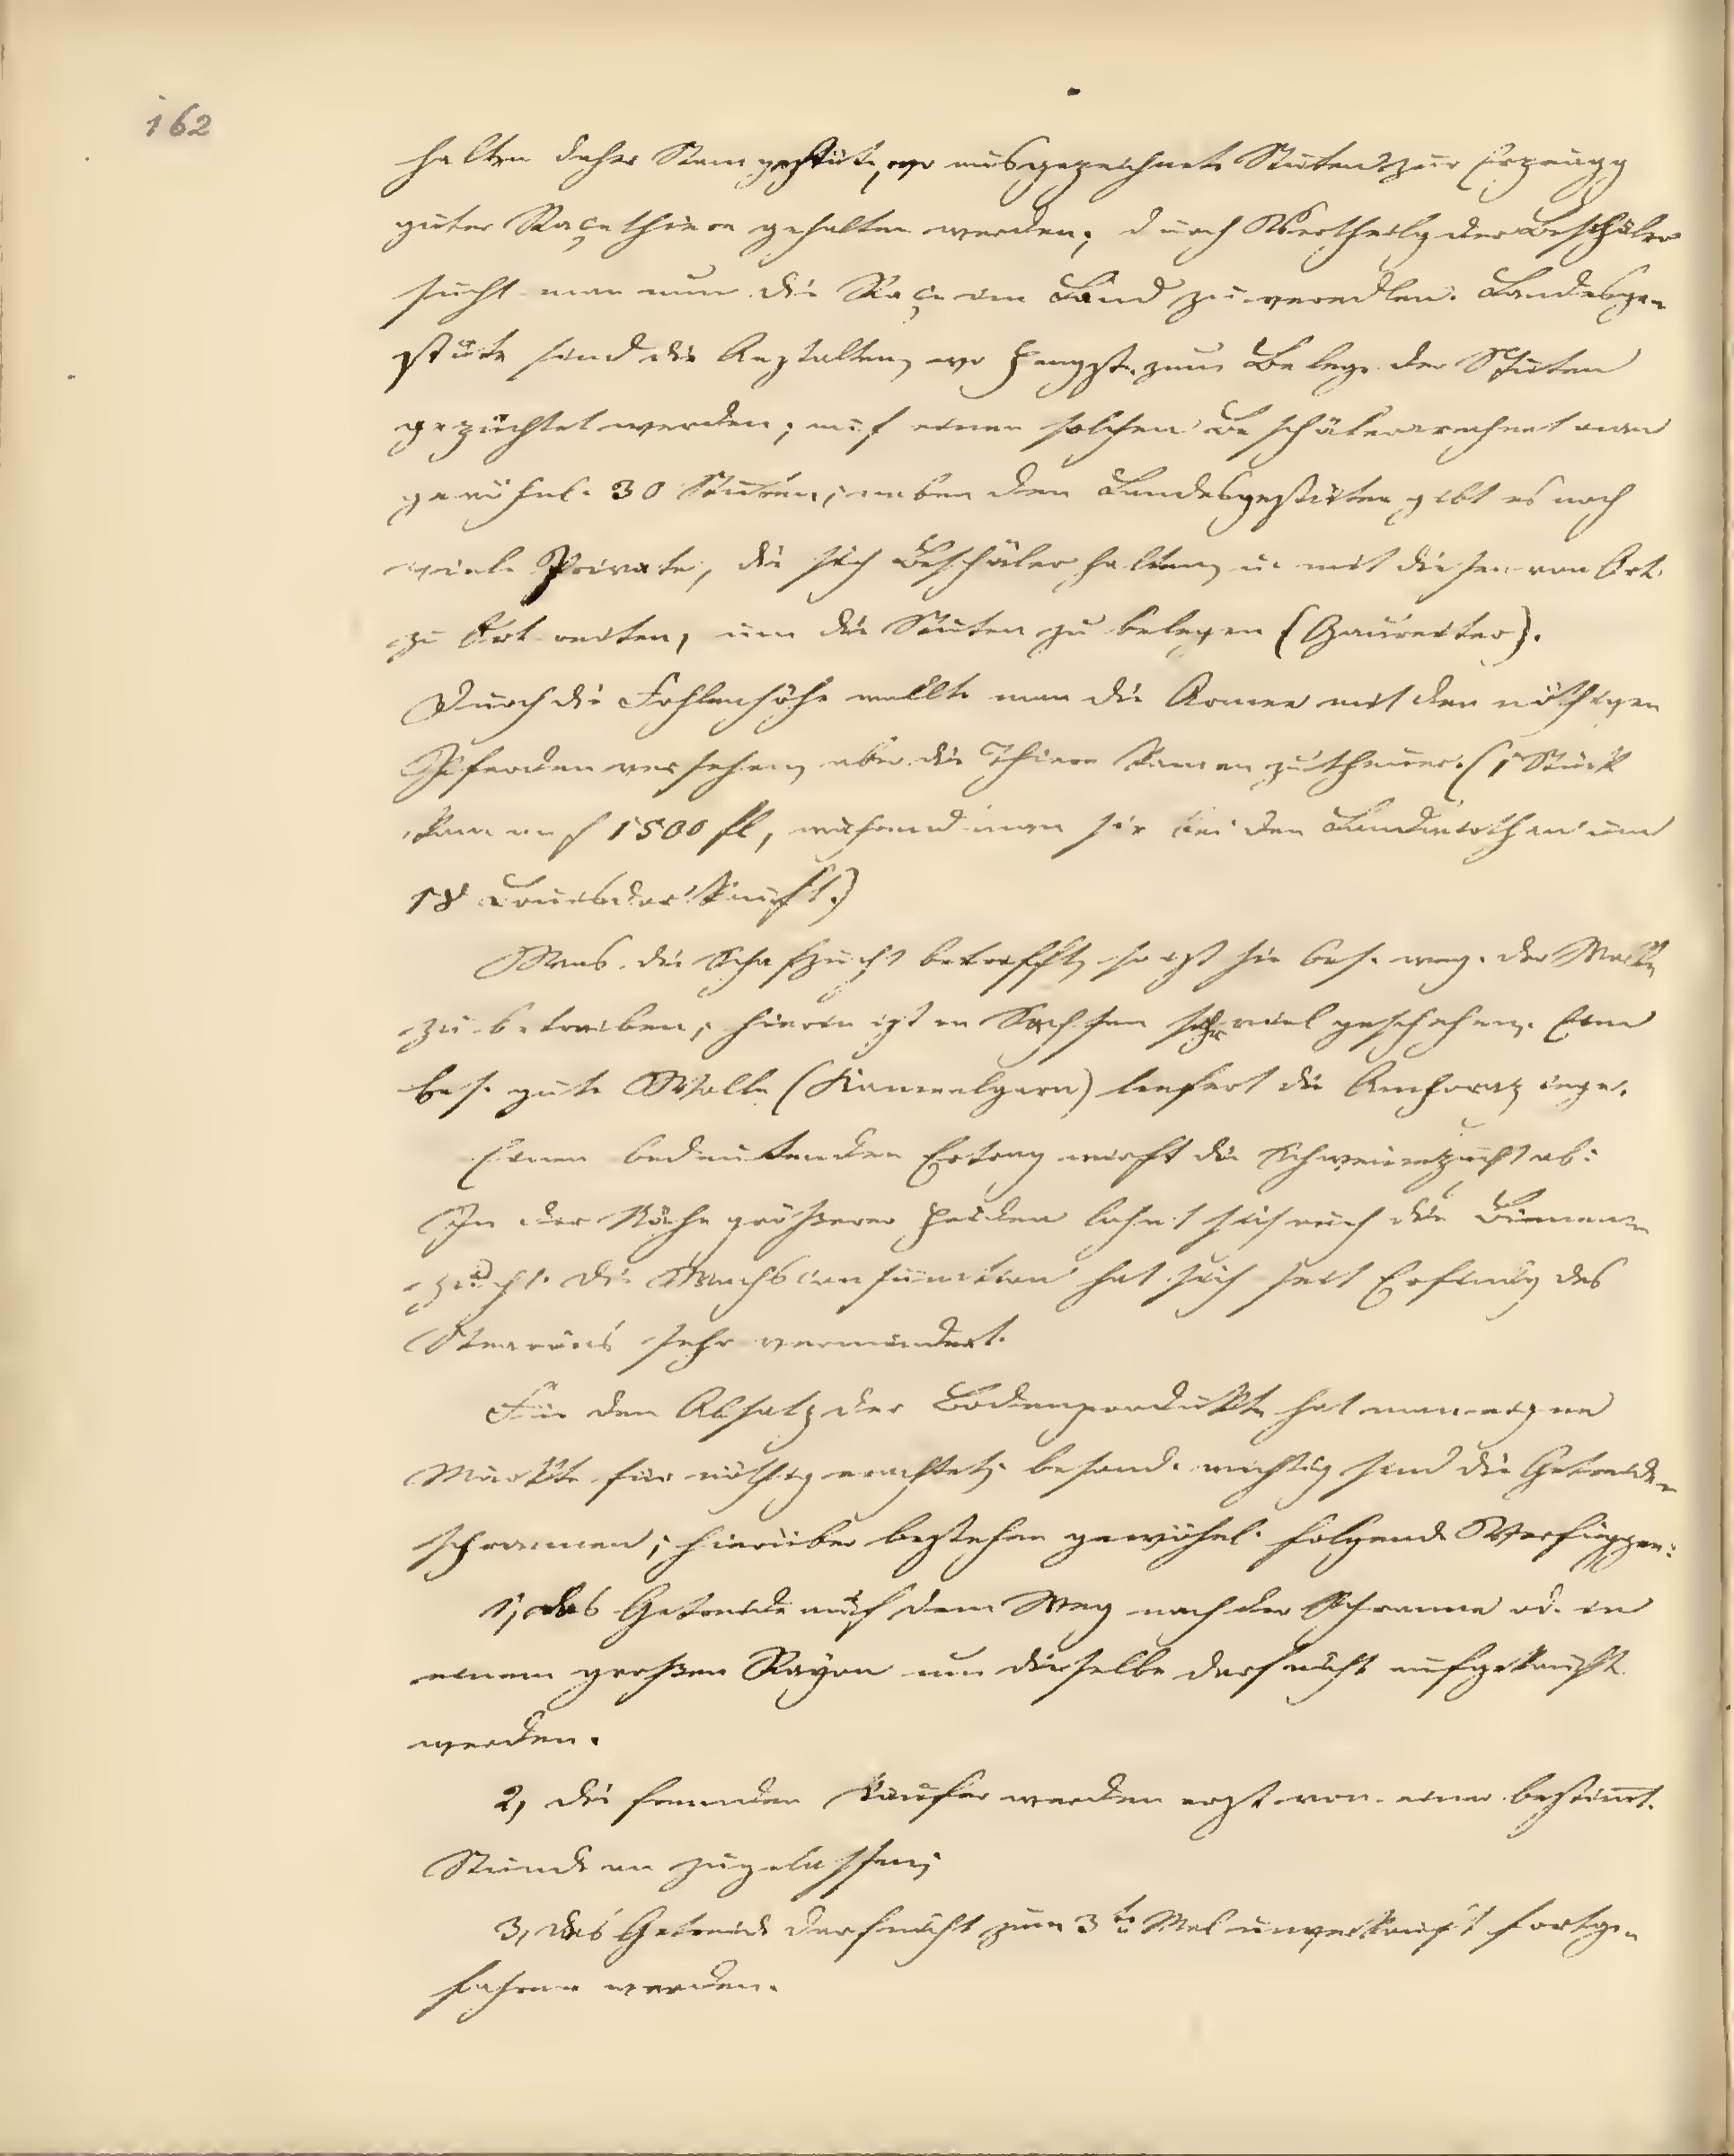 162
halten daher Stamgestüte, wo ausgezeichnete Stuten zur Erzeugg
guter Raçethiere gehalten werden; durch Vertheilg der Beschäler
sucht man nun die Raçe im Land zu veredlen. Landesge-
stüte sind die Anstalten, wo Hengste zum Belege der Stuten
gezüchtet werden; auf einen solchen Beschäler rechnet man
gewöhnl. 30 Stuten; neben den Landesgestüten gibt es noch
viele Private, die sich Beschäler halten, u. mit diesen von Ort
zu Ort reiten, um die Stuten zu belegen (Gaureiter).
Durch die Fohlenhöfe wollte man die Armee mit den nöthigen
Pferden versehen, aber die Thiere kamen zu theuer. (1 Stück
kam auf 1500 fl, während man sie bei den Landwirthen um
18 Louisdor kauft.)
Was die Schafzucht betrifft, so ist sie bes. weg. der Wolle
zu betreiben; hierin ist in Sachsen sehr viel geschehen. Eine
bes. gute Wolle (Kameelgarn) liefert die Angoraziege.
Einen bedeutenden Ertrag wirft die Schweinezucht ab.
In der Nähe größerer Heiden lohnt sich auch die Bienen-
zucht. Die Wachsconsumtion hat sich seit Erfindg des
Stearins sehr vermindert.
Für den Absatz der Bodenprodukte hat man eigene
Märkte für nöthig erachtet; besond. wichtig sind die Getreide-
schrannen; hierüber bestehen gewöhnl. folgende Verfüggen:
1, das Getreide auf dem Weg nach der Schranne od. in
einem großen Rayon um dieselbe darf nicht aufgekauft
werden.
2, die fremden Käufer werden erst von einer bestimt.
Stunde an zugelassen;
3, das Getreide darf nicht zum 3ten Mal unverkauft fortge-
fahren werden.